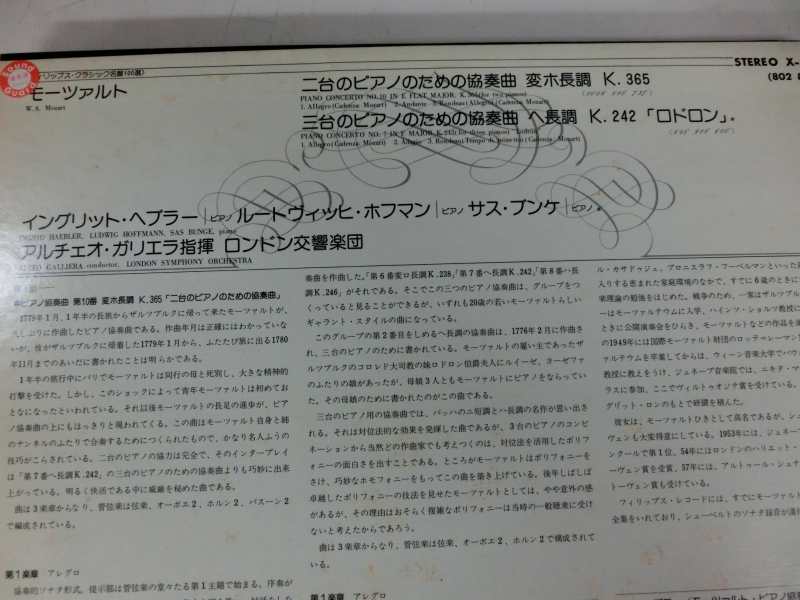 Sound Guard
リップス・クラシック名盤100選》
モーツァルト
W. A. Mozart
二台のピアノのための協奏曲 変ホ長調 K.365
PIANO CONCERTO NO.10 IN E FLAT MAJOR, K.365 (for two pianos)
1. Allegro (Cadenza: Mozart) 2. Andante 3. Rondeau: Allegro (Cadenza: Mozart)
三台のピアノのための協奏曲 ヘ長調 K.242 「ロドロン」*
PIANO CONCERTO NO.7 IN F MAJOR, K.242 (for three pianos) "Lodron"
STEREO X-
(802
イングリット・ヘブラー|ピアノ ルートヴィッヒ・ホフマン|ピアノ サス・ブンケ|ピアノ*
INGRID HAEBLER, LUDWIG HOFFMANN, SAS BUNGE, piano
アルチェオ・ガリエラ指揮 ロンドン交響楽団
ALCEO GALLIERA, conductor, LONDON SYMPHONY ORCHESTRA
ピアノ協奏曲 第10番 変ホ長調 K.365「二台のピアノのための協奏曲」
1779年1月、1年半の長旅からザルツブルクに帰って来たモーツァルトが、
久しぶりに作曲したピアノ協奏曲である。作曲年月は正確にはわかっていな
いが、彼がザルツブルクに帰着した1779年1月から、ふたたび旅に出る1780
年11月までのあいだに書かれたことは明らかである。
1年半の旅行中にパリでモーツァルトは同行の母と死別し、大きな精神的
打撃を受けた。しかし、このショックによって青年モーツァルトは初めてお
となになったといわれている。それ以後モーツァルトの長足の進歩が、ピア
ノ協奏曲の上にもはっきりと現われてくる。この曲はモーツァルト自身と姉
のナンネルのふたりで合奏するためにつくられたもので、かなり名人ふうの
技巧がこらされている。二台のピアノの協力は完全で、そのインタープレイ
は「第7番ヘ長調K.242」の三台のピアノのための協奏曲よりも巧妙に出来
上がっている。明るく快活である中に威厳を秘めた曲である。
曲は3楽章からなり、管弦楽は弦楽、オーボエ2、ホルン2、バスーン2
で編成されている。
第1楽章 アレグロ
協奏的ソナタ形式。提示部は管弦楽の堂々たる第1主題で始まる。序奏が
奏曲を作曲した。「第6番変ロ長調K.238」「第7番ヘ長調K.242」「第8番ハ長
調K.246」がそれである。そこでこの三つのピアノ協奏曲は、グループをつ
くっていると見ることができるが、いずれも20歳の若いモーツァルトらしい
ギャラント・スタイルの曲になっている。
このグループの第2番目をしめるヘ長調の協奏曲は、1776年2月に作曲さ
れ、三台のピアノのために書かれている。モーツァルトの雇い主であったザ
ルツブルクのコロレド大司教の妹ロドロン伯爵夫人にルイーゼ、ヨーゼファ
のふたりの娘があったが、母娘3人ともモーツァルトにピアノをならってい
た。その母娘のために書かれたのがこの曲である。
三台のピアノ用の協奏曲では、バッハのニ短調とハ長調の名作が思い出さ
れる。それは対位法的な効果を発揮した曲であるが、3台のピアノのコンビ
ネーションから当然どの作曲家でも考えつくのは、対位法を活用したポリフ
ォニーの面白さを出すことである。ところがモーツァルトはポリフォニーを
さけ、巧妙なホモフォニーをもってこの曲を築き上げている。後年しばしば
卓越したポリフォニーの技法を見せたモーツァルトとしては、やや意外の感
があるが、その理由はおそらく複雑なポリフォニーは当時の一般聴衆に受け
ないと考えたからであろう。
曲は3楽章からなり、管弦楽は弦楽、オーボエ2、ホルン2で構成されて
いる。
第1楽章 アレグロ
ル・カサドゥジュ、ブロニスラフ・フーベルマンといった
入りする恵まれた家庭環境のなかで、すでに6歳のときに
楽理論の勉強をはじめた。戦争のため、一家はザルツブル
ーはモーツァルテウムに入学、ハインツ・ショルツ教授に
ときに公開演奏会をひらき、モーツァルトなどの作品を演
の1949年には国際モーツァルト財団のロッテ・レーマン賞
ァルテウムを卒業してからは、ウィーン音楽大学でパウル
教授に教えをうけ、ジュネーブ音楽院では、ニキタ・マ
ラスに参加、ここでヴィルトゥオシテ賞を受けている。
グリット・ロンのもとで研鑽を積んだ。
彼女は、モーツァルトひきとして高名であるが、シュ
ヴェンも大変得意にしている。1953年には、ジュネーブ
ンクールで第1位、54年にはロンドンのハリエット・
ーヴェン賞を受賞、57年には、アルトゥール・シュナ
トーヴェン賞も受けている。
フィリップス・レコードには、すでにモーツァルト
全集をいれており、シューベルトのソナタ録音が進行